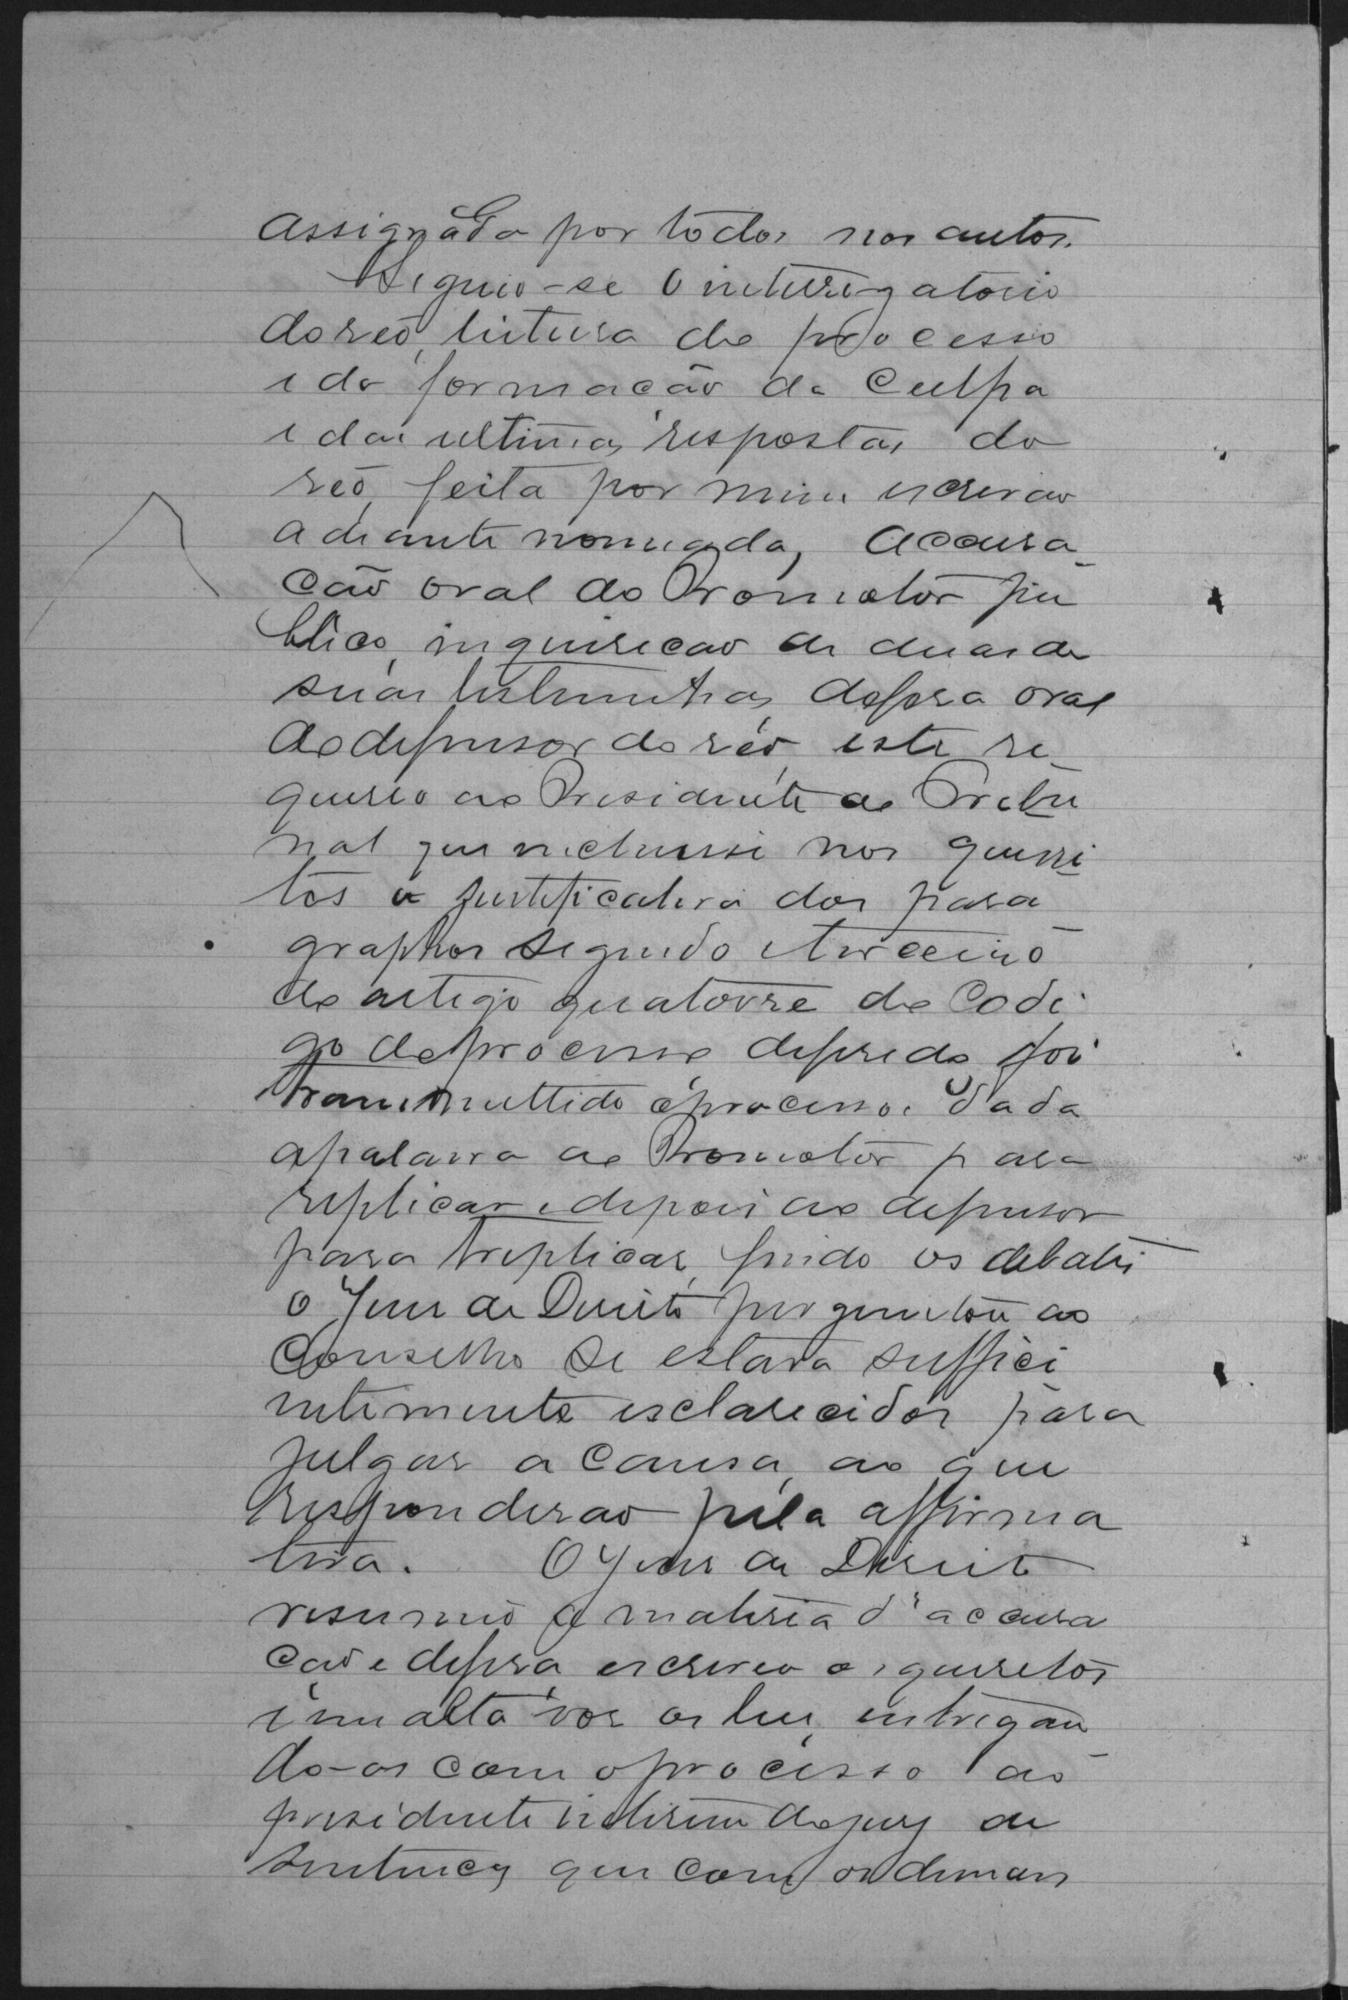 assignada por todos nos autos.
Seguio-se o interrogatorio
do reo, leitura do processo
e da formacão da culpa
e das ultimas respostas do
reo, feita por mim escrivão
adiante nomeada, accusa
cão oral do Promotor pu
blico, inquirecao de duas de
suas testemunhas, defesa oral
do defensor do réo, este re
quereo ao Presidente do Tribu
nal que incluisse nos quesi
tos a justificativa dos para
graphos segundo e terceiro
do artigo quatorze do Codi
go do processo, deferido foi
transmettido o processo. Dada
a palavra ao Promotor para
replicar e depois ao defensor
para treplicar, findo os debates
o Juiz de Direito perguntou ao
Conselho se estava suffici
entemente esclarecidos para
julgar a causa, ao que
responderao pela affirma
tiva. O Juiz de Direito
resumio a materia d'accusa
cao e defesa, escreveo os quesitos
em alta voz os leu, entregan
do-os com o processo ao
presidente interino do jury de
sentença que com os demais